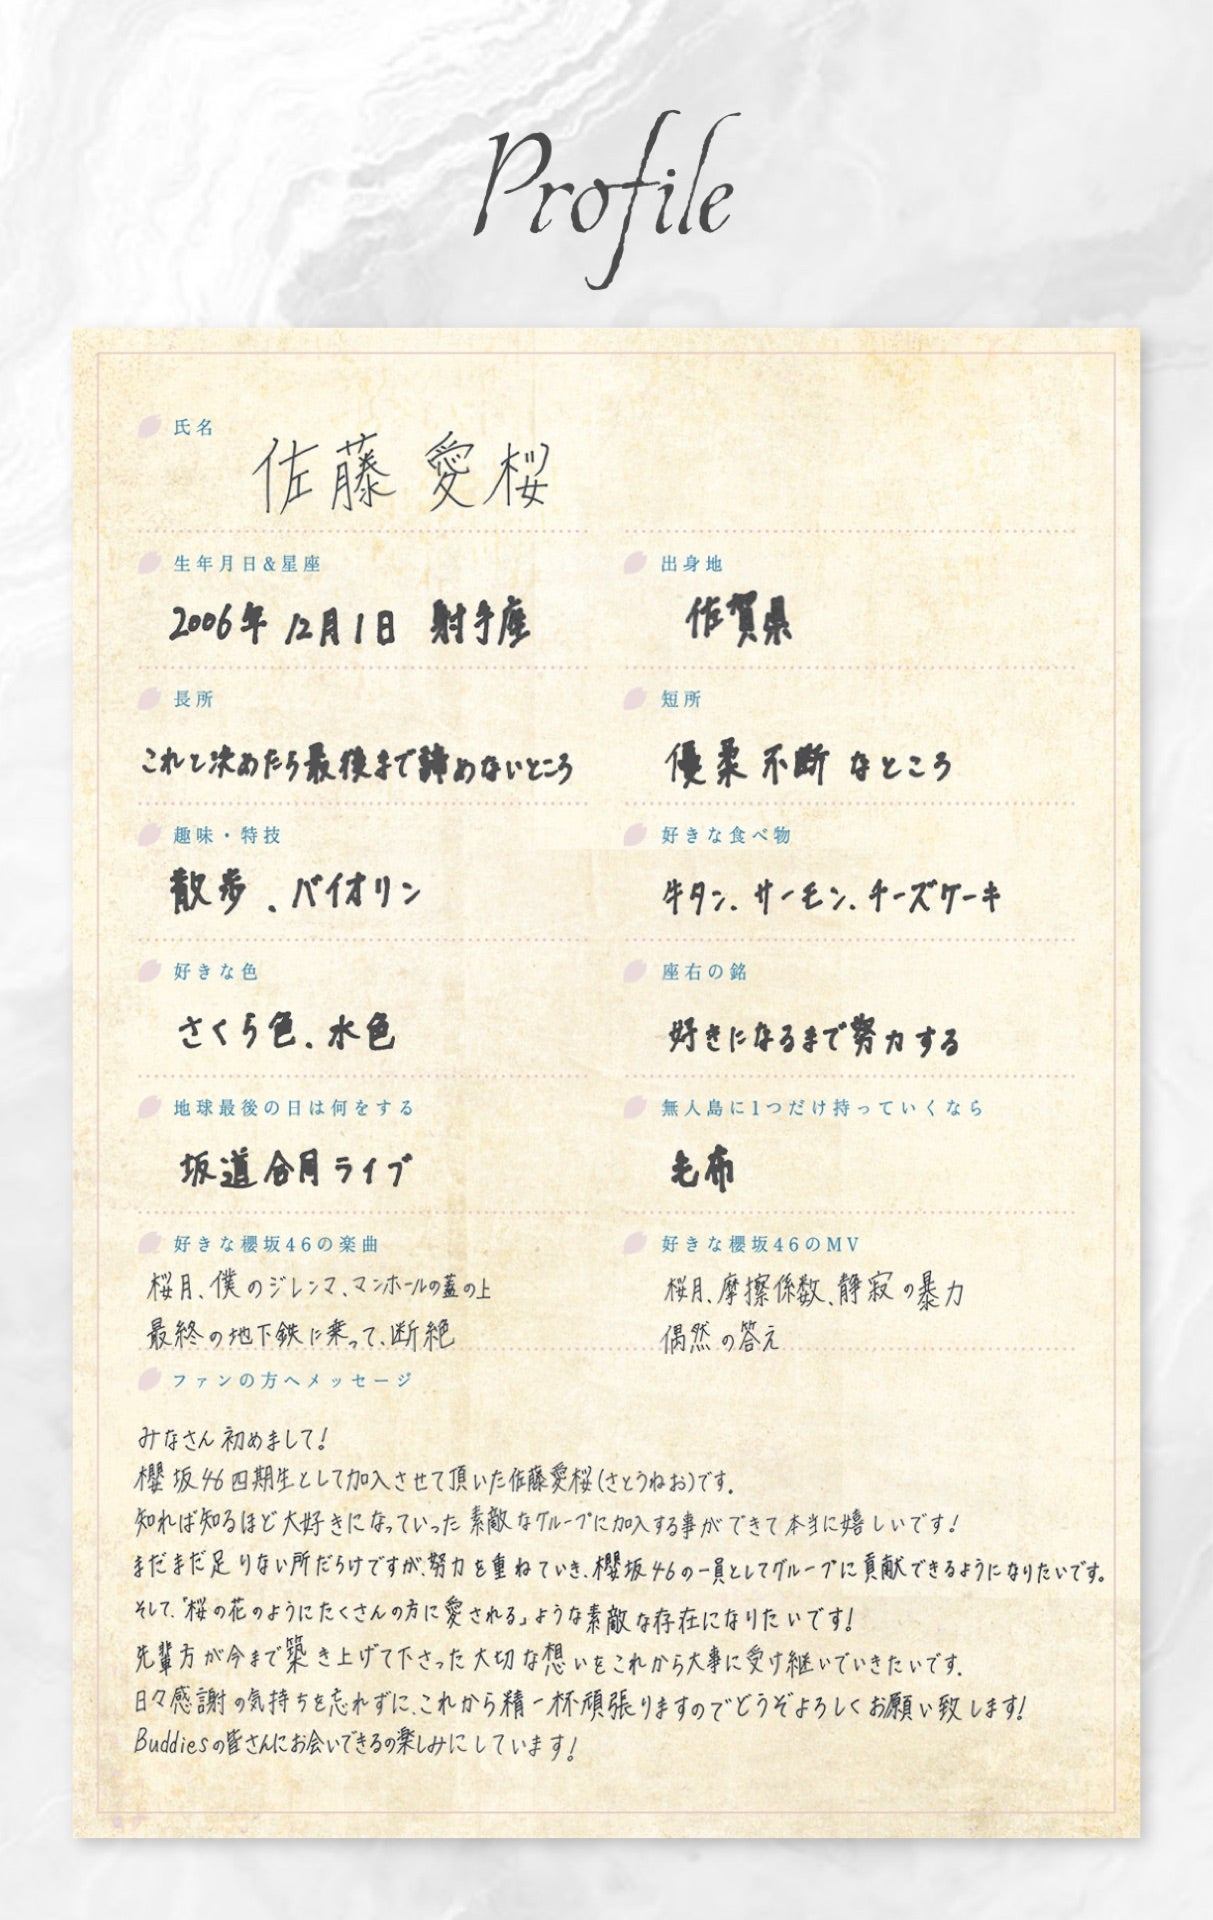 Profile
氏名
佐藤 愛桜
生年月日&星座
2006年 12月1日 射手座
出身地
佐賀県
長所
これと決めたら最後まで諦めないところ
短所
優柔不断なところ
趣味・特技
散歩、バイオリン
好きな食べ物
牛タン、サーモン、チーズケーキ
好きな色
さくら色、水色
座右の銘
好きになるまで努力する
地球最後の日は何をする
坂道合同ライブ
無人島に1つだけ持っていくなら
毛布
好きな櫻坂46の楽曲
桜月、僕のジレンマ、マンホールの蓋の上
最終の地下鉄に乗って、断絶
好きな櫻坂46のMV
桜月、摩擦係数、静寂の暴力
偶然の答え
ファンの方へメッセージ
みなさん初めまして!
櫻坂46四期生として加入させて頂いた佐藤愛桜(さとうねお)です。
知れば知るほど大好きになっていった素敵なグループに加入する事ができて本当に嬉しいです!
まだまだ足りない所だらけですが、努力を重ねていき、櫻坂46の一員としてグループに貢献できるようになりたいです。
そして、「桜の花のようにたくさんの方に愛される」ような素敵な存在になりたいです!
先輩方が今まで築き上げて下さった大切な想いをこれから大事に受け継いでいきたいです。
日々感謝の気持ちを忘れずに、これから精一杯頑張りますのでどうぞよろしくお願い致します!
Buddiesの皆さんにお会いできるの楽しみにしています!